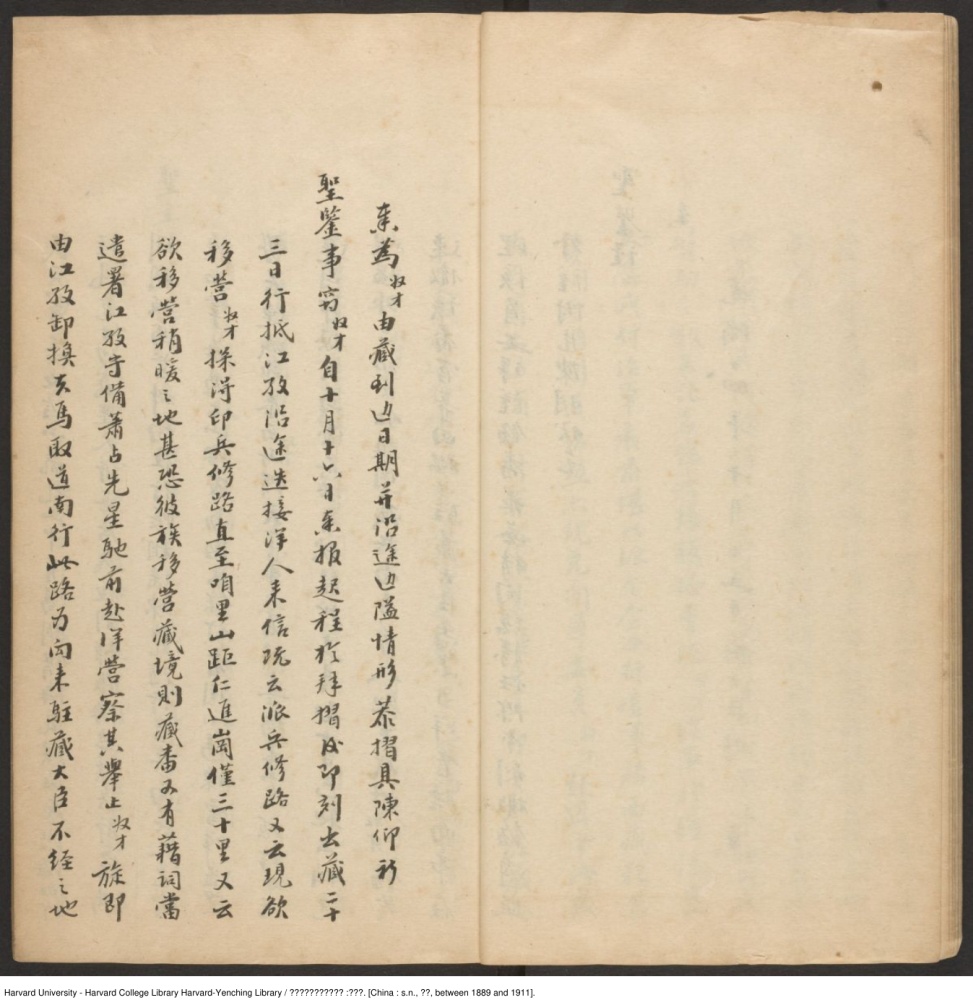 奏為奴才由藏到边日期并沿途边隘情形恭摺具陳仰祈
聖鑒事窃奴才自十月十六日奏报起程於拜摺後即刻出藏二十
三日行抵江孜沿途迭接洋人来信既云派兵修路又云現欲
移营奴才探得印兵修路直至咱里山距仁進崗僅三十里又云
欲移营稍暖之地甚恐彼族移营藏境則藏番又有藉詞當
遣署江孜守備蕭占先星馳前赴洋营察其舉止奴才旋即
由江孜卸換夫馬取道南行此路为向来駐藏大臣不經之地
Harvard University - Harvard College Library Harvard-Yenching Library / ??????????? :???. [China : s.n., ??, between 1889 and 1911].